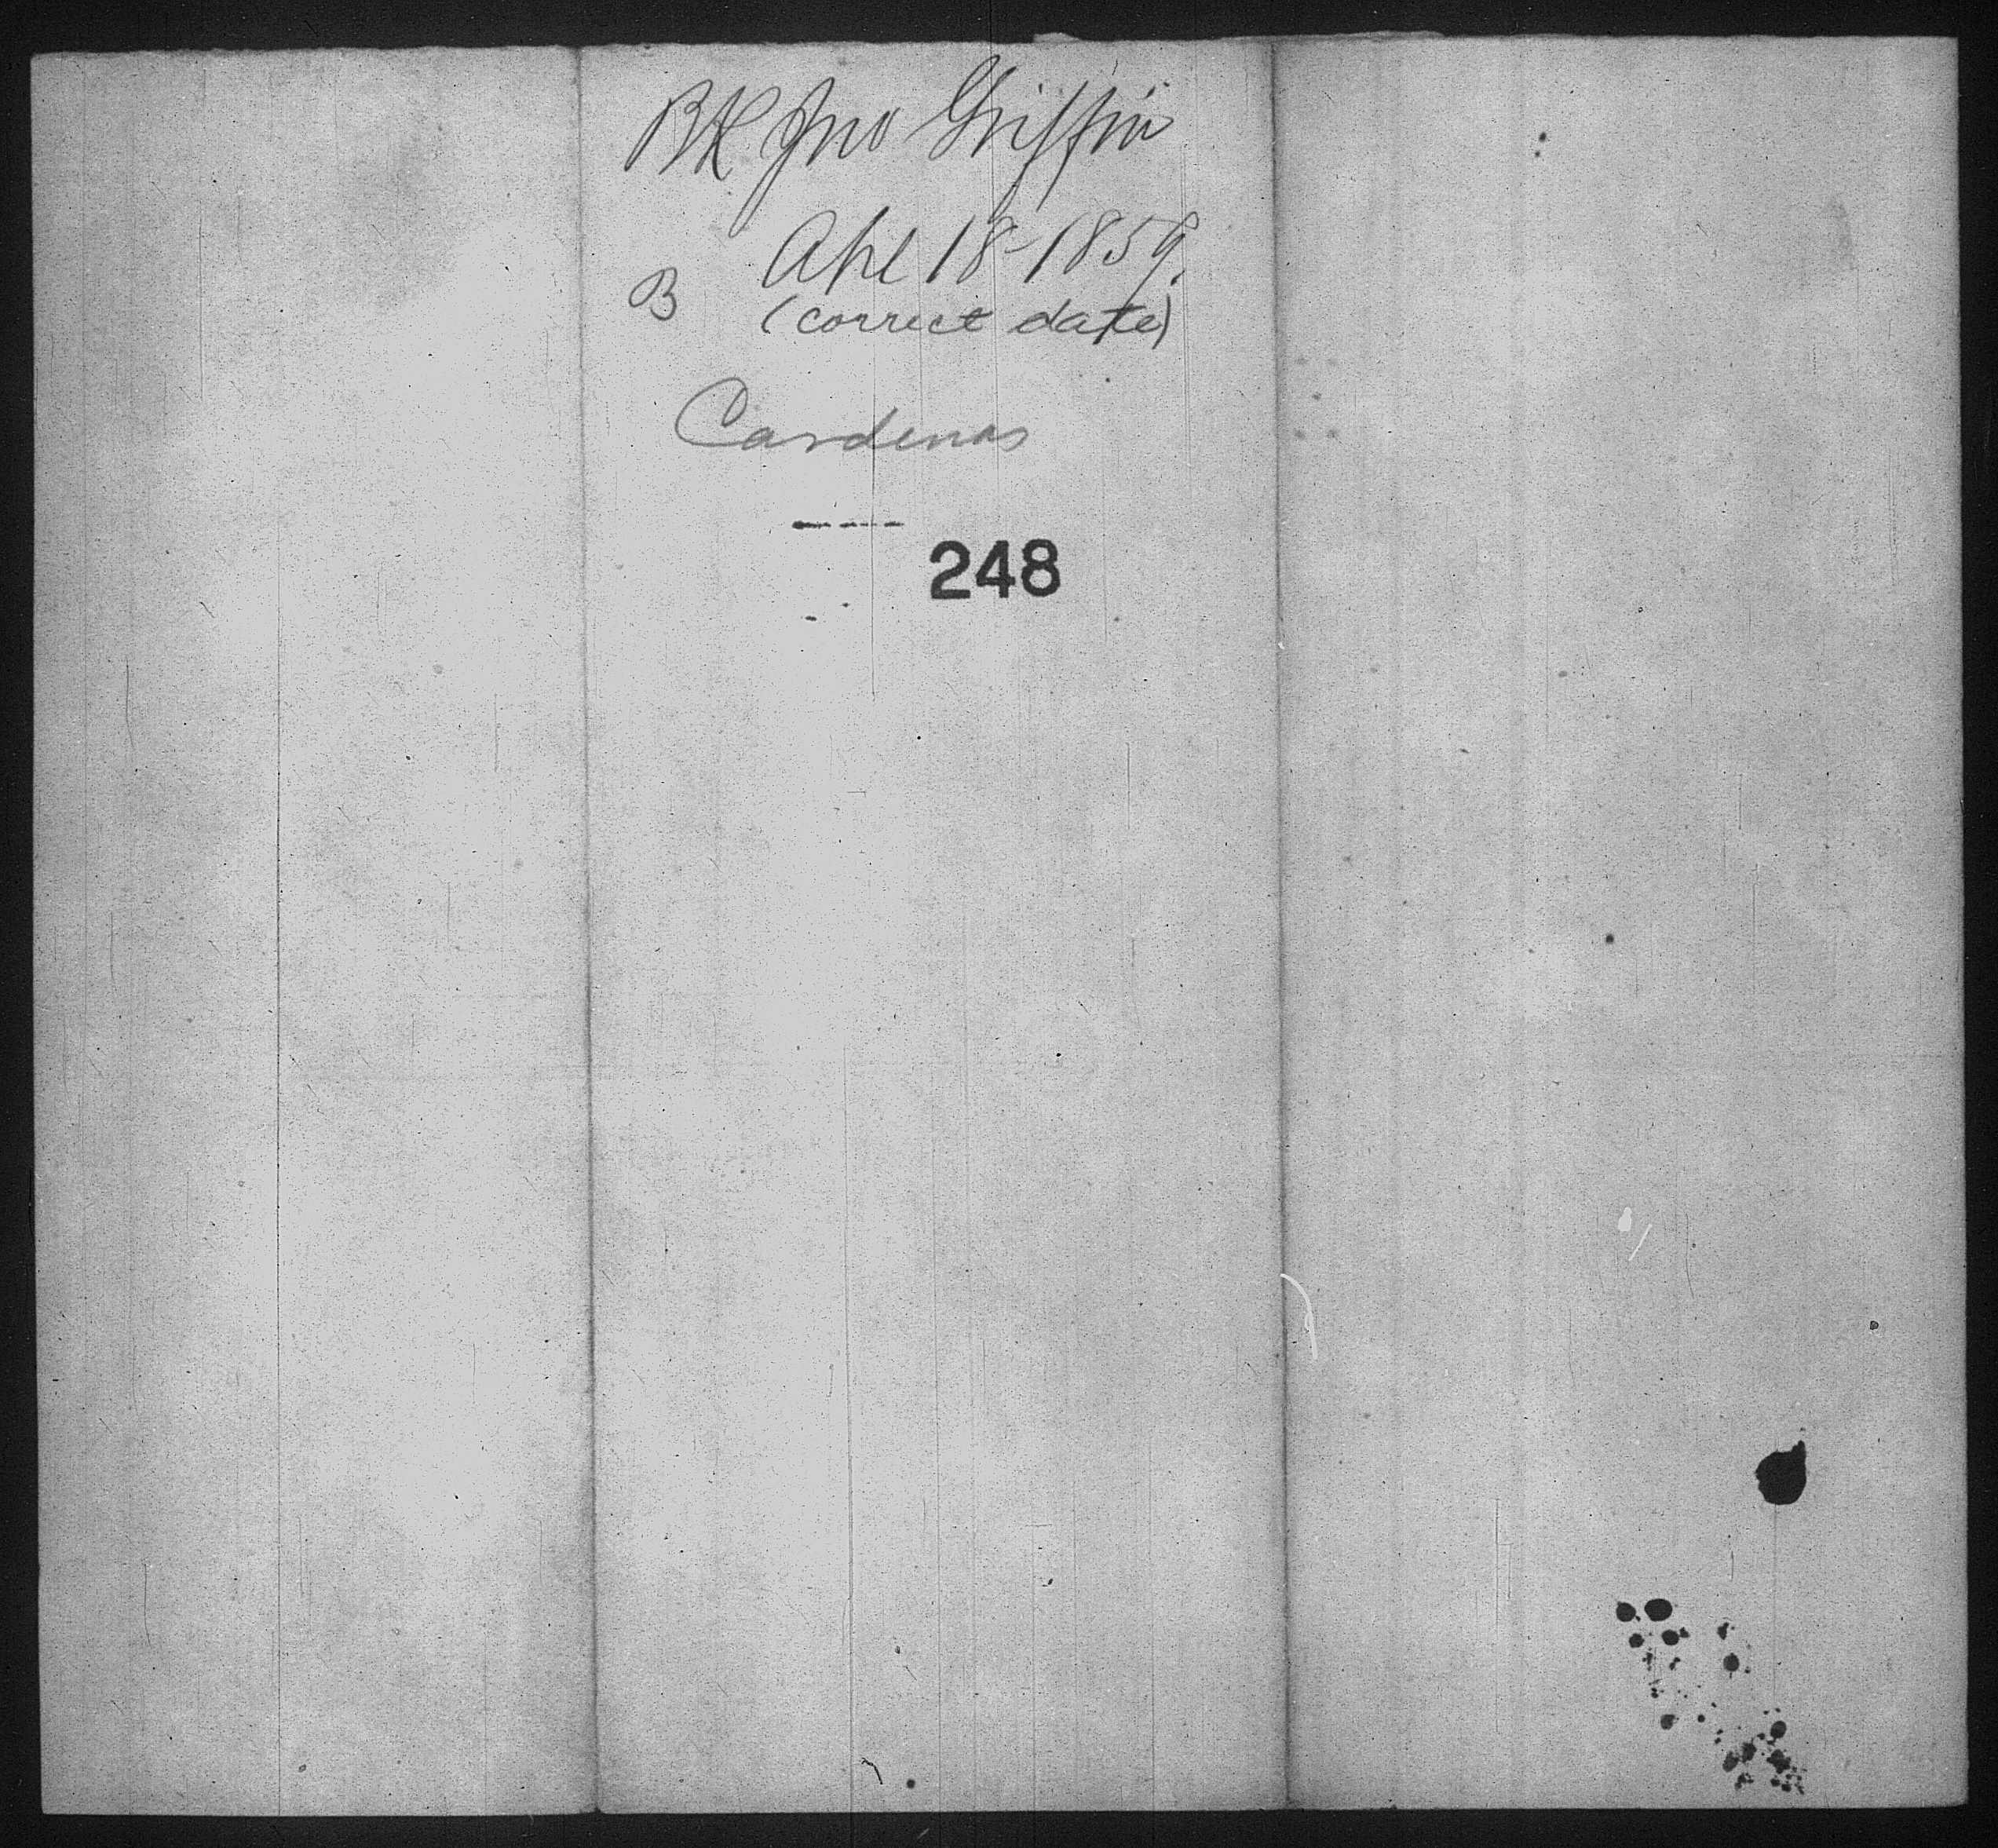 BK Jno Griffin
Apl 18-1859.
B (correct date)
Cardenas
248